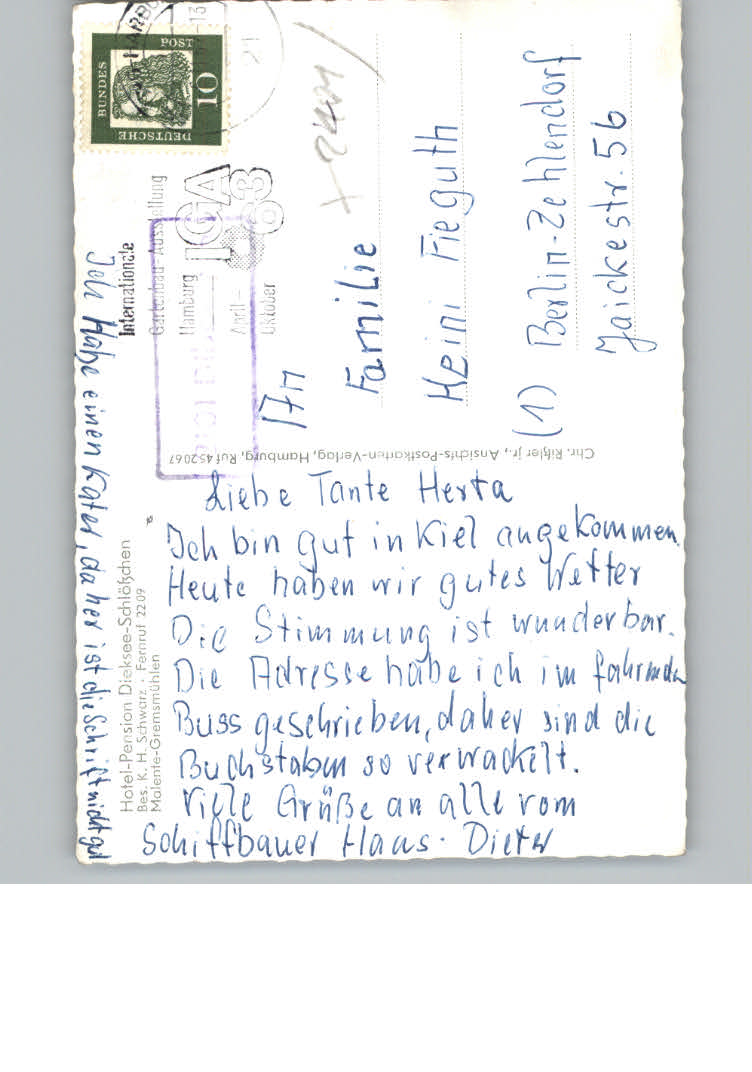 DEUTSCHE
BUNDES
POST
10
Internationale
Gartenbau-Ausstellung
Hamburg
April–
Oktober
IGA
63
An
Familie
Heini Fieguth
(1) Berlin-Zehlendorf
Jaickestr. 56
Chr. Rißler jr., Ansichts-Postkarten-Verlag, Hamburg, Ruf 452067
Liebe Tante Herta
Ich bin gut in Kiel angekommen.
Heute haben wir gutes Wetter
Die Stimmung ist wunderbar.
Die Adresse habe ich im fahrenden
Buss geschrieben, daher sind die
Buchstaben so verwackelt.
Viele Grüße an alle vom
Schiffbauer Hans-Dieter
Ich Habe einen Kater, daher ist die Schrift nicht gut
Hotel-Pension Dieksee-Schlößchen
Bes. K. H. Schwarz · Fernruf 2209
Malente-Gremsmühlen